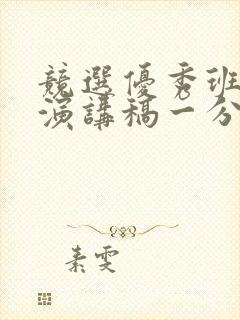 競選優秀班
演講稿一分
素雯